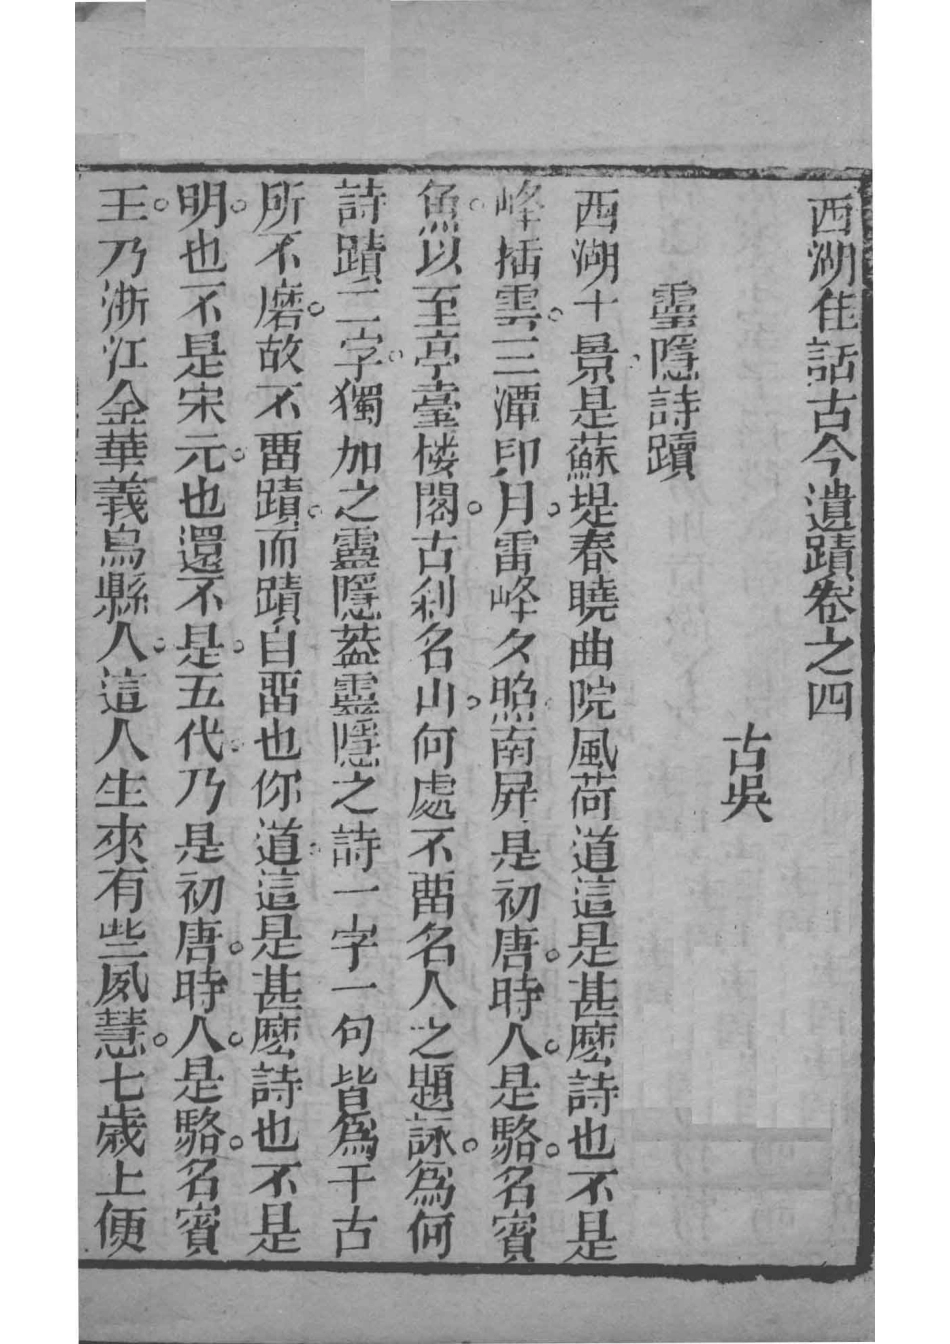 西湖佳話古今遺蹟卷之四
古吳
靈隱詩蹟
西湖十景是蘇堤春曉曲院風荷道這是甚麽詩也不是
峰插雲。三潭印月。雷峰夕照南屏是初唐。時人。是駱。名賓
魚。以至亭臺楼閣。古刹名山。何處不畱名人之題詠。為何
詩蹟二字。獨加之靈隱葢靈隱之詩一字一句皆為千古
所不磨。故不畱蹟。而蹟自畱也你道這是甚麽詩也不是
明。也不是宋元。也還不是。五代。乃是初唐。時人。是駱。名賓
王。乃浙江金華義烏縣人。這人生來有些夙慧。七歲上便